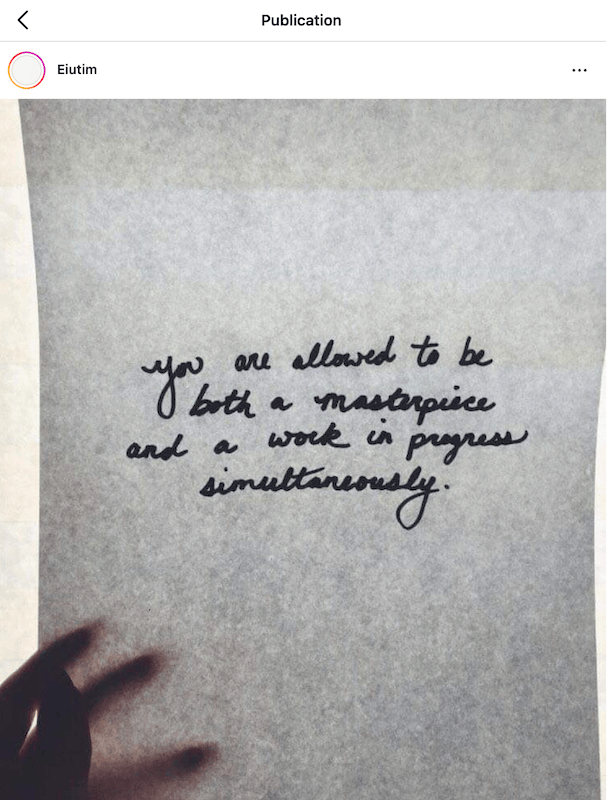 Publication
Eiutim
you are allowed to be
both a masterpiece
and a work in progress
simultaneously.